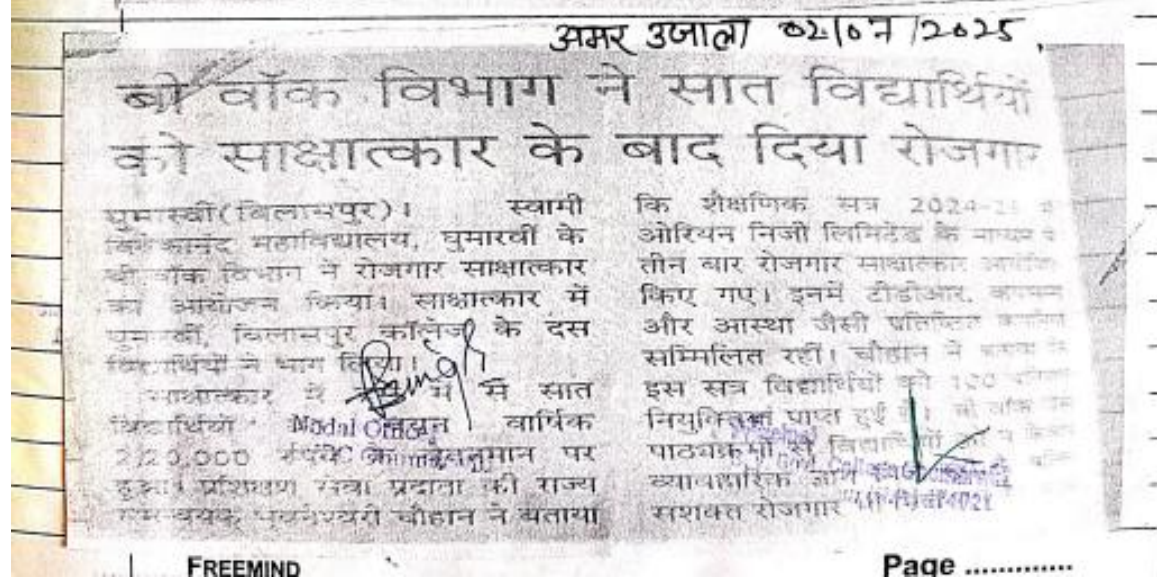 अमर उजाला 02/07/2025
बी वॉक विभाग ने सात विद्यार्थियों
को साक्षात्कार के बाद दिया रोजगार
घुमारवीं (बिलासपुर)। स्वामी
विवेकानंद महाविद्यालय, घुमारवीं के
बी वॉक विभाग ने रोजगार साक्षात्कार
का आयोजन किया। साक्षात्कार में
घुमारवीं, बिलासपुर कॉलेज के दस
विद्यार्थियों ने भाग लिया।
साक्षात्कार में में से सात
विद्यार्थियों चयन वार्षिक
2,20,000 रुपये के वेतनमान पर
हुआ। प्रशिक्षण सेवा प्रदाता की राज्य
समन्वयक भुवनेश्वरी चौहान ने बताया
कि शैक्षणिक सत्र 2024-25
ओरियन निजी लिमिटेड के माध्यम
तीन बार रोजगार साक्षात्कार
किए गए। इनमें टीडीआर,
और आस्था जैसी प्रतिष्ठित
सम्मिलित रहीं। चौहान ने
इस सत्र विद्यार्थियों को 100
नियुक्तियां प्राप्त हुई
पाठ्यक्रमों से विद्यार्थियों को न
व्यावहारिक ज्ञान
सशक्त रोजगार
Nodal Officer
FREEMIND
Page ............